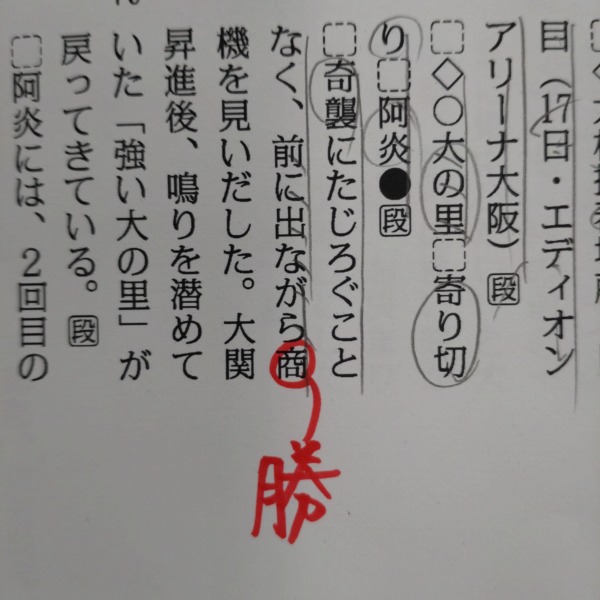 目（17日・エディオン
アリーナ大阪）段
◇○大の里 寄り切
り 阿炎●段
奇襲にたじろぐこと
なく、前に出ながら商
勝
機を見いだした。大関
昇進後、鳴りを潜めて
いた「強い大の里」が
戻ってきている。段
阿炎には、2回目の